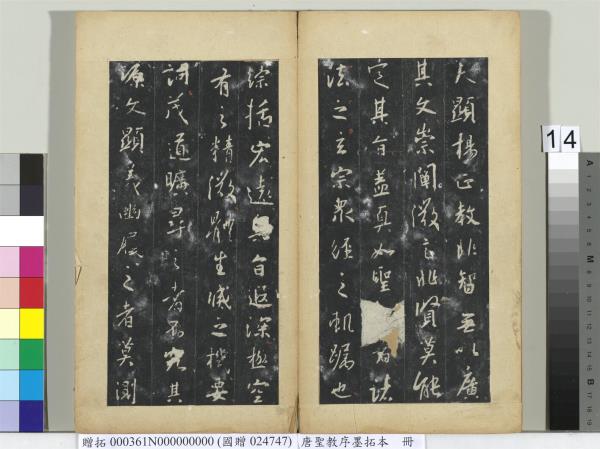 夫顯揚正教非智無以廣
其文崇闡微言非賢莫能
定其旨蓋真如聖
者諸
法之玄宗眾經之軌躅也
綜括宏遠奧旨遐深極空
有之精微體生滅之機要
詞茂道曠尋之者不究其
源文顯義幽履之者莫測
14
贈拓 000361N000000000 (國贈 024747) 唐聖教序墨拓本 冊